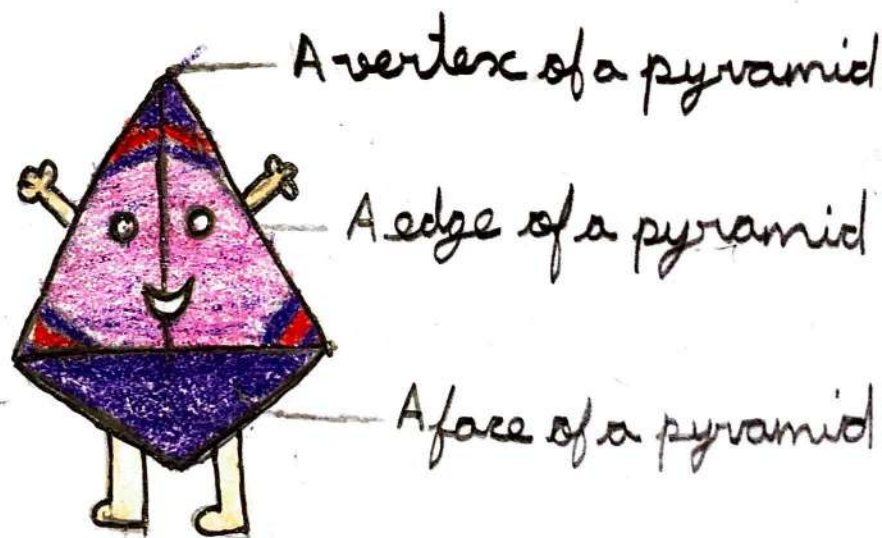 A vertex of a pyramid
A edge of a pyramid
A face of a pyramid